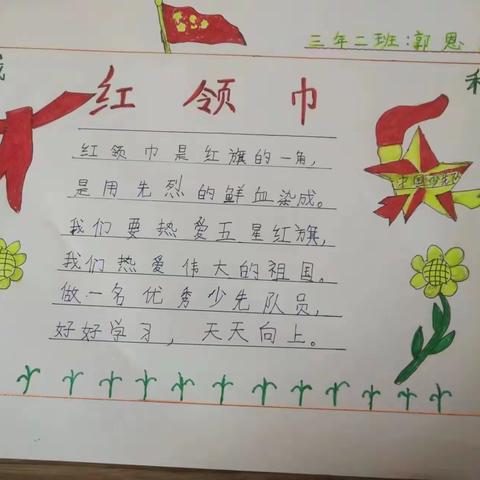 三年二班:郭恩
我
和
红领巾
红领巾是红旗的一角,
是用先烈的鲜血染成。
我们要热爱五星红旗,
我们热爱伟大的祖国。
做一名优秀少先队员,
好好学习,天天向上。